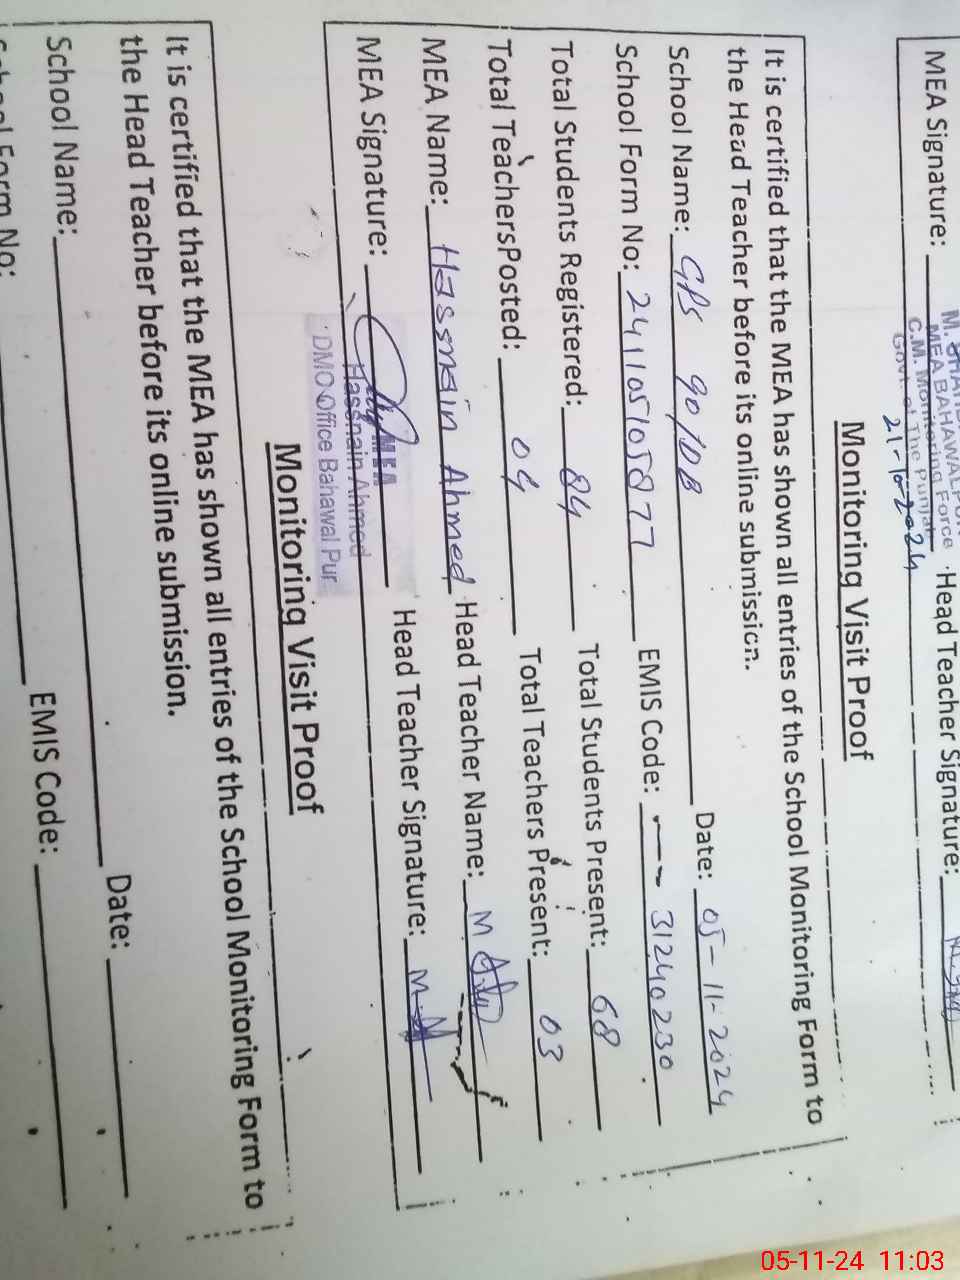 M.
MEA BAHAWALPUR
C.M. Monitoring Force
Govt. of The Punjab
21-10-2024
MEA Signature: Head Teacher Signature:
Monitoring Visit Proof
It is certified that the MEA has shown all entries of the School Monitoring Form to
the Head Teacher before its online submission.
School Name: GPS 90/DB Date: 05-11-2024
School Form No: 241105105877 EMIS Code: 31240230
Total Students Registered: 84 Total Students Present: 68
Total Teachers Posted: 04 Total Teachers Present: 03
MEA Name: Hassnain Ahmed Head Teacher Name: M
MEA Signature: Head Teacher Signature: M
MEA
Hassnain Ahmed
DMO Office Bahawal Pur
Monitoring Visit Proof
It is certified that the MEA has shown all entries of the School Monitoring Form to
the Head Teacher before its online submission.
School Name: Date:
School Form No: EMIS Code:
05-11-24 11:03